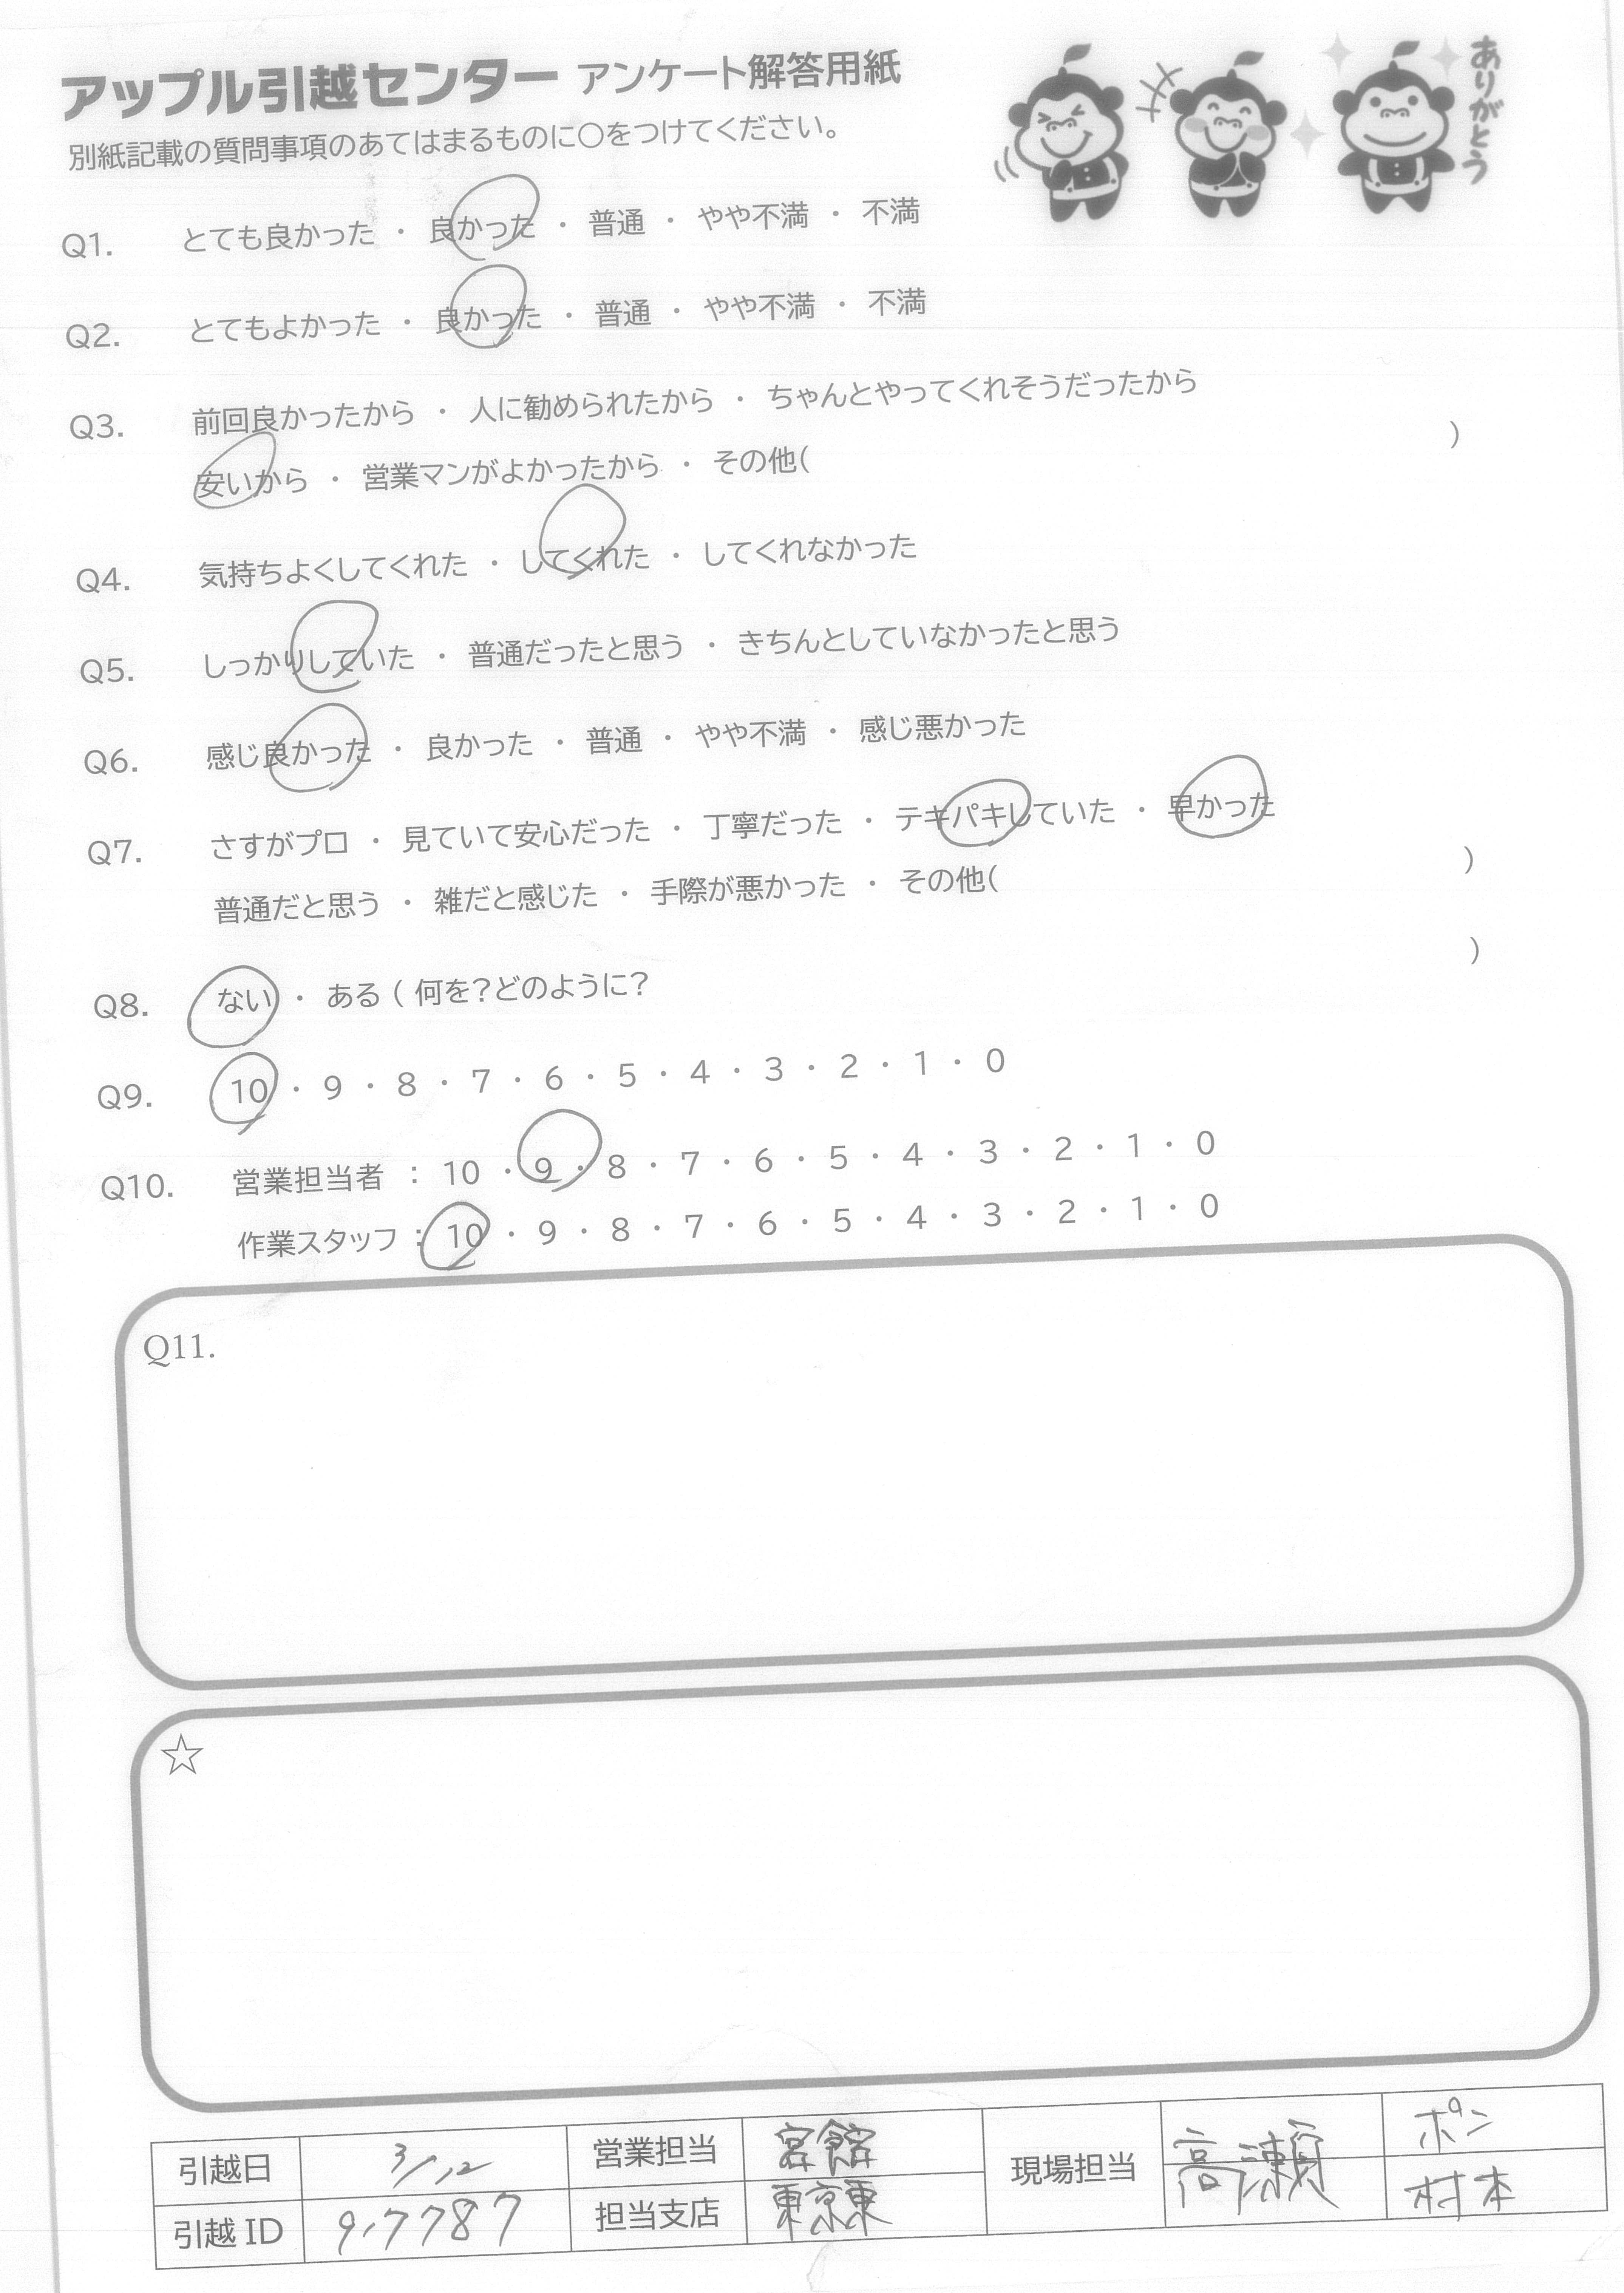 アップル引越センター アンケート解答用紙
ありがとう
別紙記載の質問事項のあてはまるものに○をつけてください。
Q1. とても良かった ・ 良かった ・ 普通 ・ やや不満 ・ 不満
Q2. とてもよかった ・ 良かった ・ 普通 ・ やや不満 ・ 不満
Q3. 前回良かったから ・ 人に勧められたから ・ ちゃんとやってくれそうだったから
安いから ・ 営業マンがよかったから ・ その他( )
Q4. 気持ちよくしてくれた ・ してくれた ・ してくれなかった
Q5. しっかりしていた ・ 普通だったと思う ・ きちんとしていなかったと思う
Q6. 感じ良かった ・ 良かった ・ 普通 ・ やや不満 ・ 感じ悪かった
Q7. さすがプロ ・ 見ていて安心だった ・ 丁寧だった ・ テキパキしていた ・ 早かった
普通だと思う ・ 雑だと感じた ・ 手際が悪かった ・ その他( )
Q8. ない ・ ある ( 何を?どのように? )
Q9. 10 ・ 9 ・ 8 ・ 7 ・ 6 ・ 5 ・ 4 ・ 3 ・ 2 ・ 1 ・ 0
Q10. 営業担当者 : 10 ・ 9 ・ 8 ・ 7 ・ 6 ・ 5 ・ 4 ・ 3 ・ 2 ・ 1 ・ 0
作業スタッフ : 10 ・ 9 ・ 8 ・ 7 ・ 6 ・ 5 ・ 4 ・ 3 ・ 2 ・ 1 ・ 0
Q11.
☆
引越日 3/12 営業担当 現場担当 高瀬 ポン
引越 ID 担当支店 東京東 村本